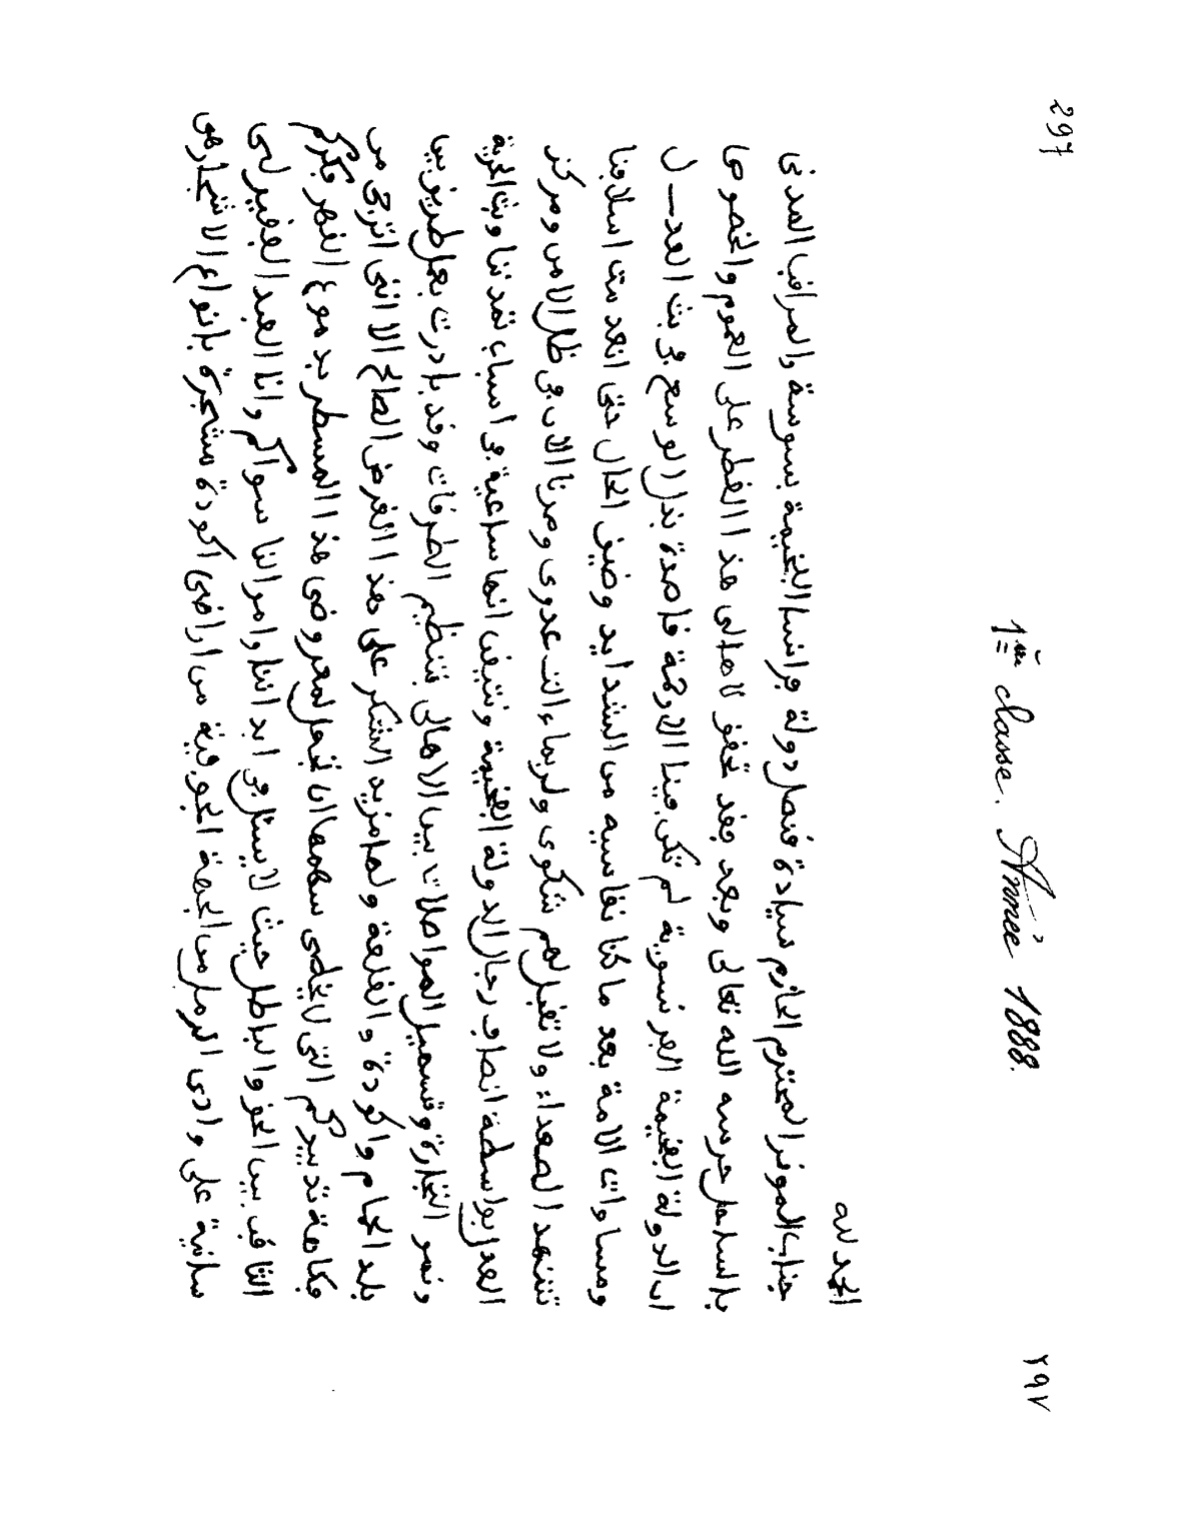 297
1ère classe. Année 1888.
٢٩٧
الحمد لله
جناب الموقر المحترم الحازم سيادة قنصل دولة فرانسا الفخيمة بسوسة والمراقب المدني
بالساحل حرسه الله تعالى وبعد فقد تحقق لاهالي هذا القطر على العموم والخصوص
ان الدولة الفخيمة الفرنسوية لم تكن فينا الا رحمة قاصدة بذل الوسع في بث العدل
ومساوات الامة بعد ما كنا نقاسيه من الشدايد وضيق الحال حتى انعدمت اسلافنا
تتنهد الصعداء ولا تقبل لهم شكوى ولربماءالت عدوى وصرنا الان في ظل الامن ومركز
العدل بواسطة انصاف رجال الدولة الفخيمة ونتيقن انها ساعية في اسباب تمدننا وبث الحرية
ونمو التجارة وتسهيل المواصلات بين الاهالي بتنظيم الطرقات وقد بادرت بجعل طريق بين
بلد الحمام واكودة والقلعة ولها مزيد الشكر على هذا الغرض الصالح الا انني اترجى من
فكاهة تدبيركم التي لا يخطى سهمها ان تجعل لمعروضي هذا المسطر بدموع القهر فكركم
الثاقب بين الحق والباطل حيث لا يسئل في ابداننا وامرالنا سواكم وانا العبد الفقير لي
سانية على وادي الرمل من الجهة الجوفية من اراضي اكودة مشجرة بانواع الاشجار هي